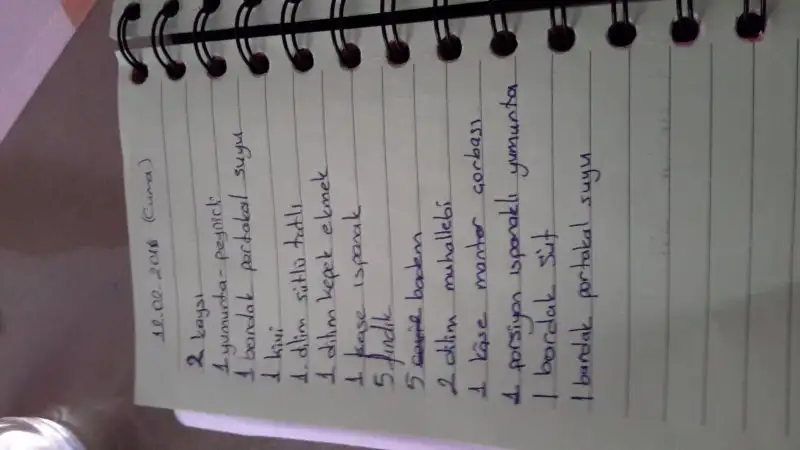 (Cuma)
2 kayısı
1 yumurta - peynirli
1 bardak portakal suyu
1 kivi
1 dilim sütlü tatlı
1 dilim kepek ekmek
1 kase ıspanak
5 fındık
5 badem
2 dilim muhallebi
1 kase mantar çorbası
1 porsiyon ıspanaklı yumurta
1 bardak süt
1 bardak portakal suyu